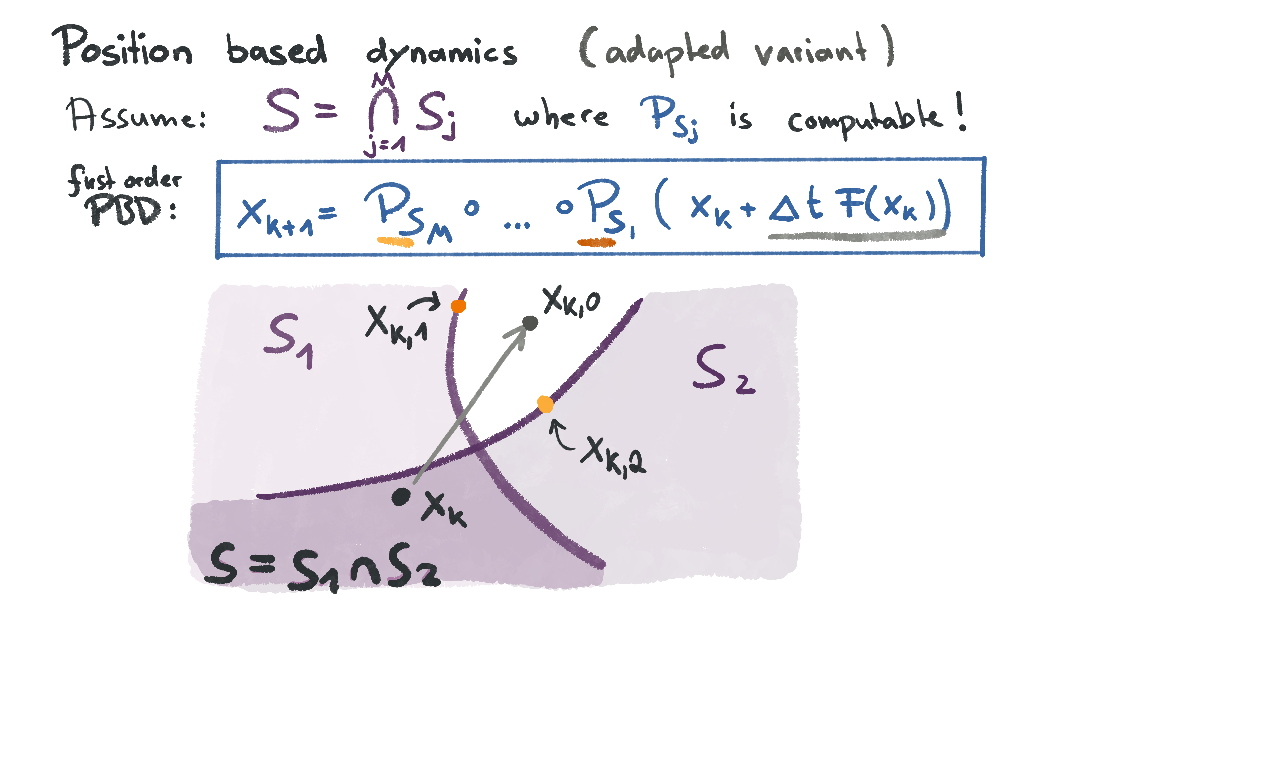 Position based dynamics (adapted variant)
Assume: S = ⋂_{j=1}^{M} S_j where P_{S_j} is computable!
first order
PBD: x_{k+1} = P_{S_M} ∘ ... ∘ P_{S_1} ( x_k + Δt F(x_k))
x_{k,1} x_{k,0}
S_1
S_2
x_{k,2}
x_k
S = S_1 ∩ S_2